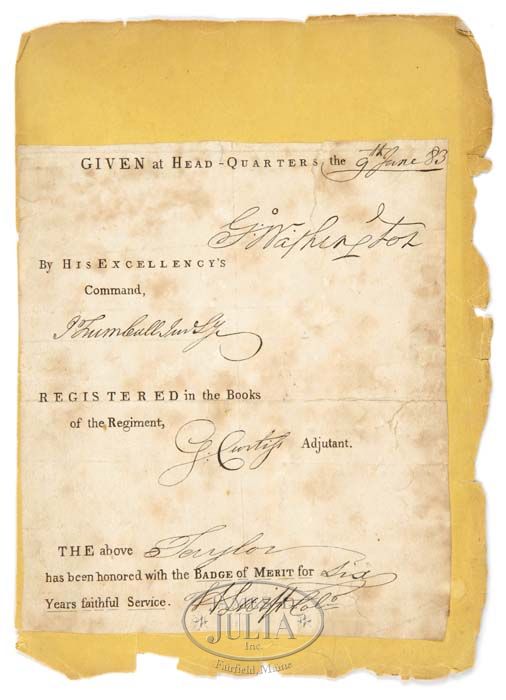 GIVEN at HEAD-QUARTERS the 9th June 83
Go Washington
By HIS EXCELLENCY'S
Command,
J Trumbull Jun Sy
REGISTERED in the Books
of the Regiment,
G. Curtiss Adjutant.
THE above Taylor
has been honored with the BADGE of MERIT for Six
Years faithful Service. H Swift Colo
JULIA
Inc.
Fairfield, Maine